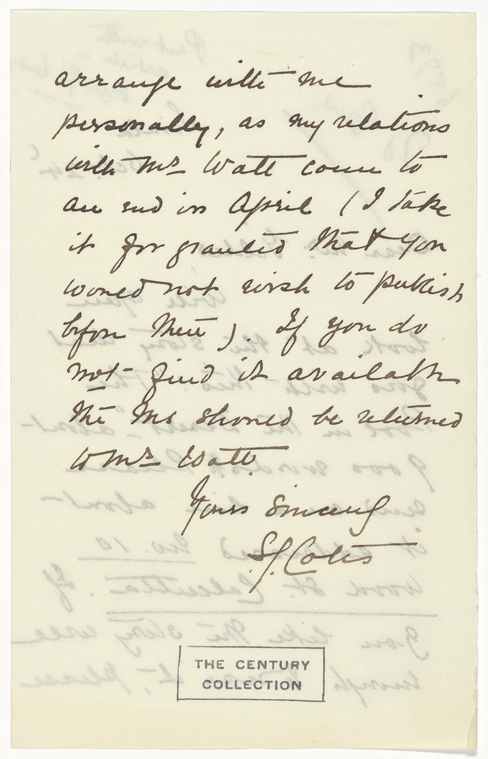 arrange with me
personally, as my relations
with Mr Watt come to
an end in April (I take
it for granted that you
would not wish to publish
before then). If you do
not find it available
the Ms should be returned
to Mr Watt
Yours Sincerely
S. J. Cotes
THE CENTURY
COLLECTION